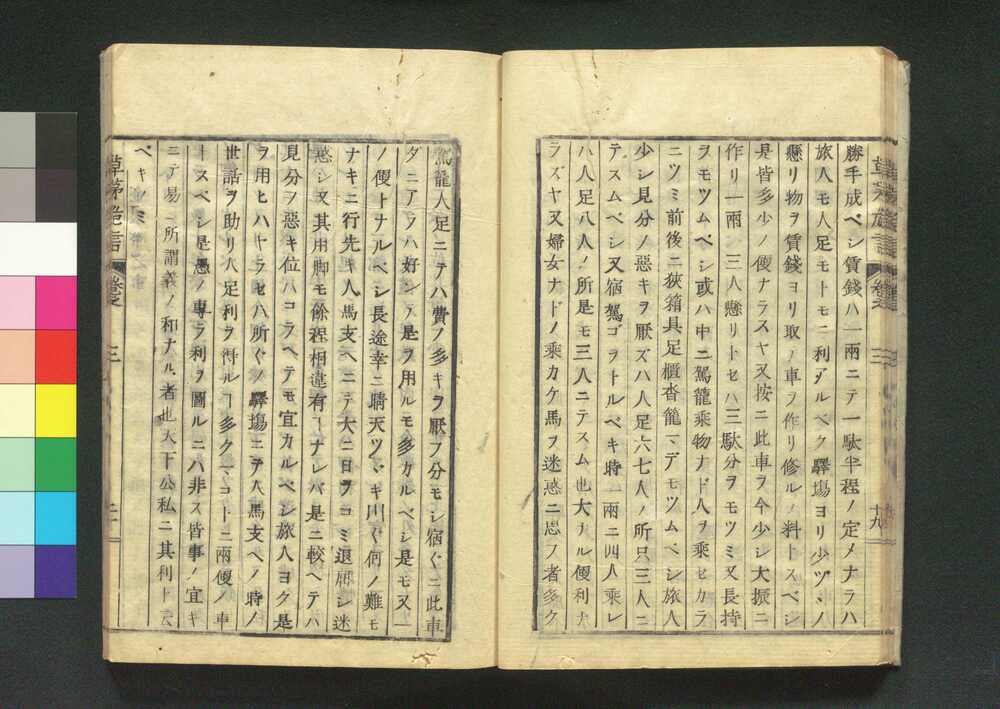 勝手成ベシ賃錢ハ一兩ニテ一駄半程ノ定メナラハ
旅人モ人足モトモニ利ダルベク驛塲ヨリ少ヅヽノ
懸リ物ヲ賃錢ヨリ取ノ車ヲ作リ修ルノ料トスベシ
是皆多少ノ便ナラスヤ又按ニ此車ヲ今少シ大振ニ
作リ一兩ニ三人懸リトセハ三駄分ヲモツミ又長持
ヲモツムベシ或ハ中ニ駕籠乘物ナド人ヲ乘セカラ
ニツミ前後ニ狹箱具足櫃沓籠マデモツムベシ旅人
少シ見分ノ惡キヲ厭ズハ人足六七人ノ所只三人ニ
テスムベシ又宿駕ゴヲトルベキ時一兩ニ四人乘レ
ハ人足八人ノ所是モ三人ニテスム也大ナル便利ナ
ラズヤ又婦女ナドノ乘カケ馬ヲ迷惑ニ思フ者多ク
駕籠人足ニテハ費ノ多キヲ厭フ分モシ宿〱ニ此車
ダニアラハ好ンデ是ヲ用ルモ多カルベシ是モ又一
ノ便トナルベシ長途幸ニ晴天ツヾキ川〱何ノ難モ
ナキニ行先キ人馬支ヘニテ大ニ日ヲコミ退屈シ迷
惑シ又其用脚モ餘程相違有ヿナレバ是ニ較ヘテハ
見分ヲ惡キ位ハコラヘテモ宜カルベシ旅人ヨク是
ヲ用ヒハヤラセハ所〱ノ驛塲ニテ人馬支ヘノ時ノ
世話ヲ助リ人足利ヲ得ルヿ多クマコトニ兩便ノ車
トスベシ是愚ノ專ラ利ヲ圖ルニハ非ス皆事ノ宜キ
ニテ易ニ所謂義ノ和ナル者也天下公私ニ其利ト云
ベキノミ
草茅危言